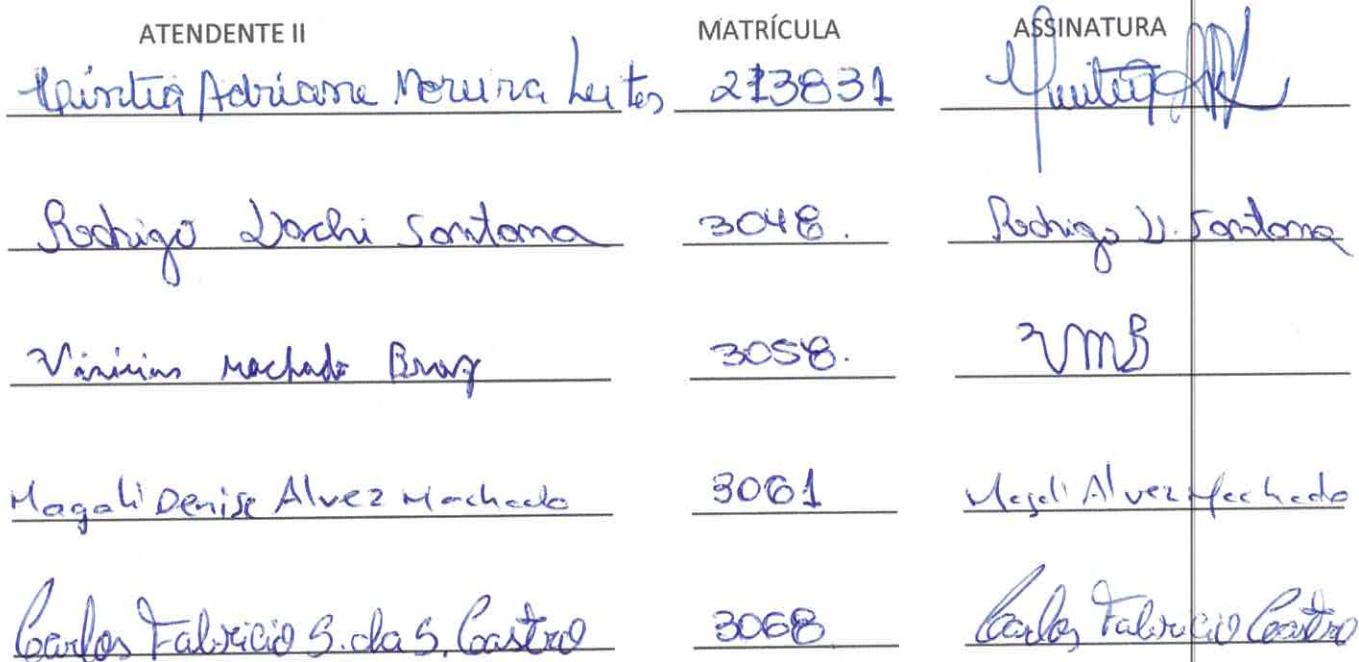 ATENDENTE II MATRÍCULA ASSINATURA
Adriane Moreira Leites 213831
Rodrigo Santana 3048. Rodrigo Santana
Vinicius Machado Braz 3058. VMB
Magali Denise Alvez Machado 3061 Magali Alvez Machado
Carlos Fabricio S. da S. Castro 3068 Carlos Fabricio Castro